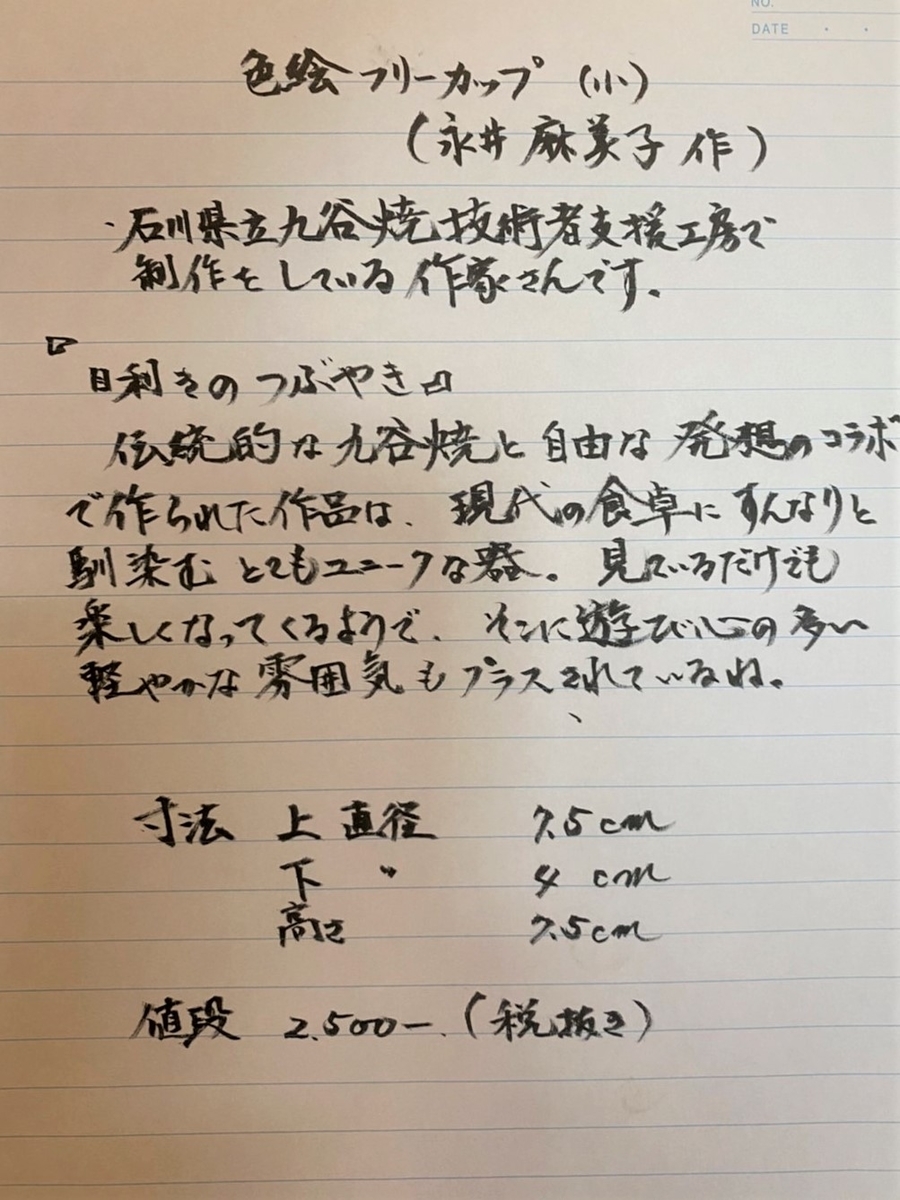 NO.
DATE ・ ・
色絵フリーカップ (小)
(永井 麻美子 作)
・石川県立九谷焼技術者支援工房で
制作をしている作家さんです。
『
目利きのつぶやき』
伝統的な九谷焼と自由な発想のコラボ
で作られた作品は、現代の食卓にすんなりと
馴染むとてもユニークな器。見ているだけでも
楽しくなってくるようで、そこに遊び心の多い
軽やかな雰囲気もプラスされているね。
寸法 上 直径 7.5cm
下 〃 4 cm
高さ 7.5cm
値段 2.500ー.(税抜き)